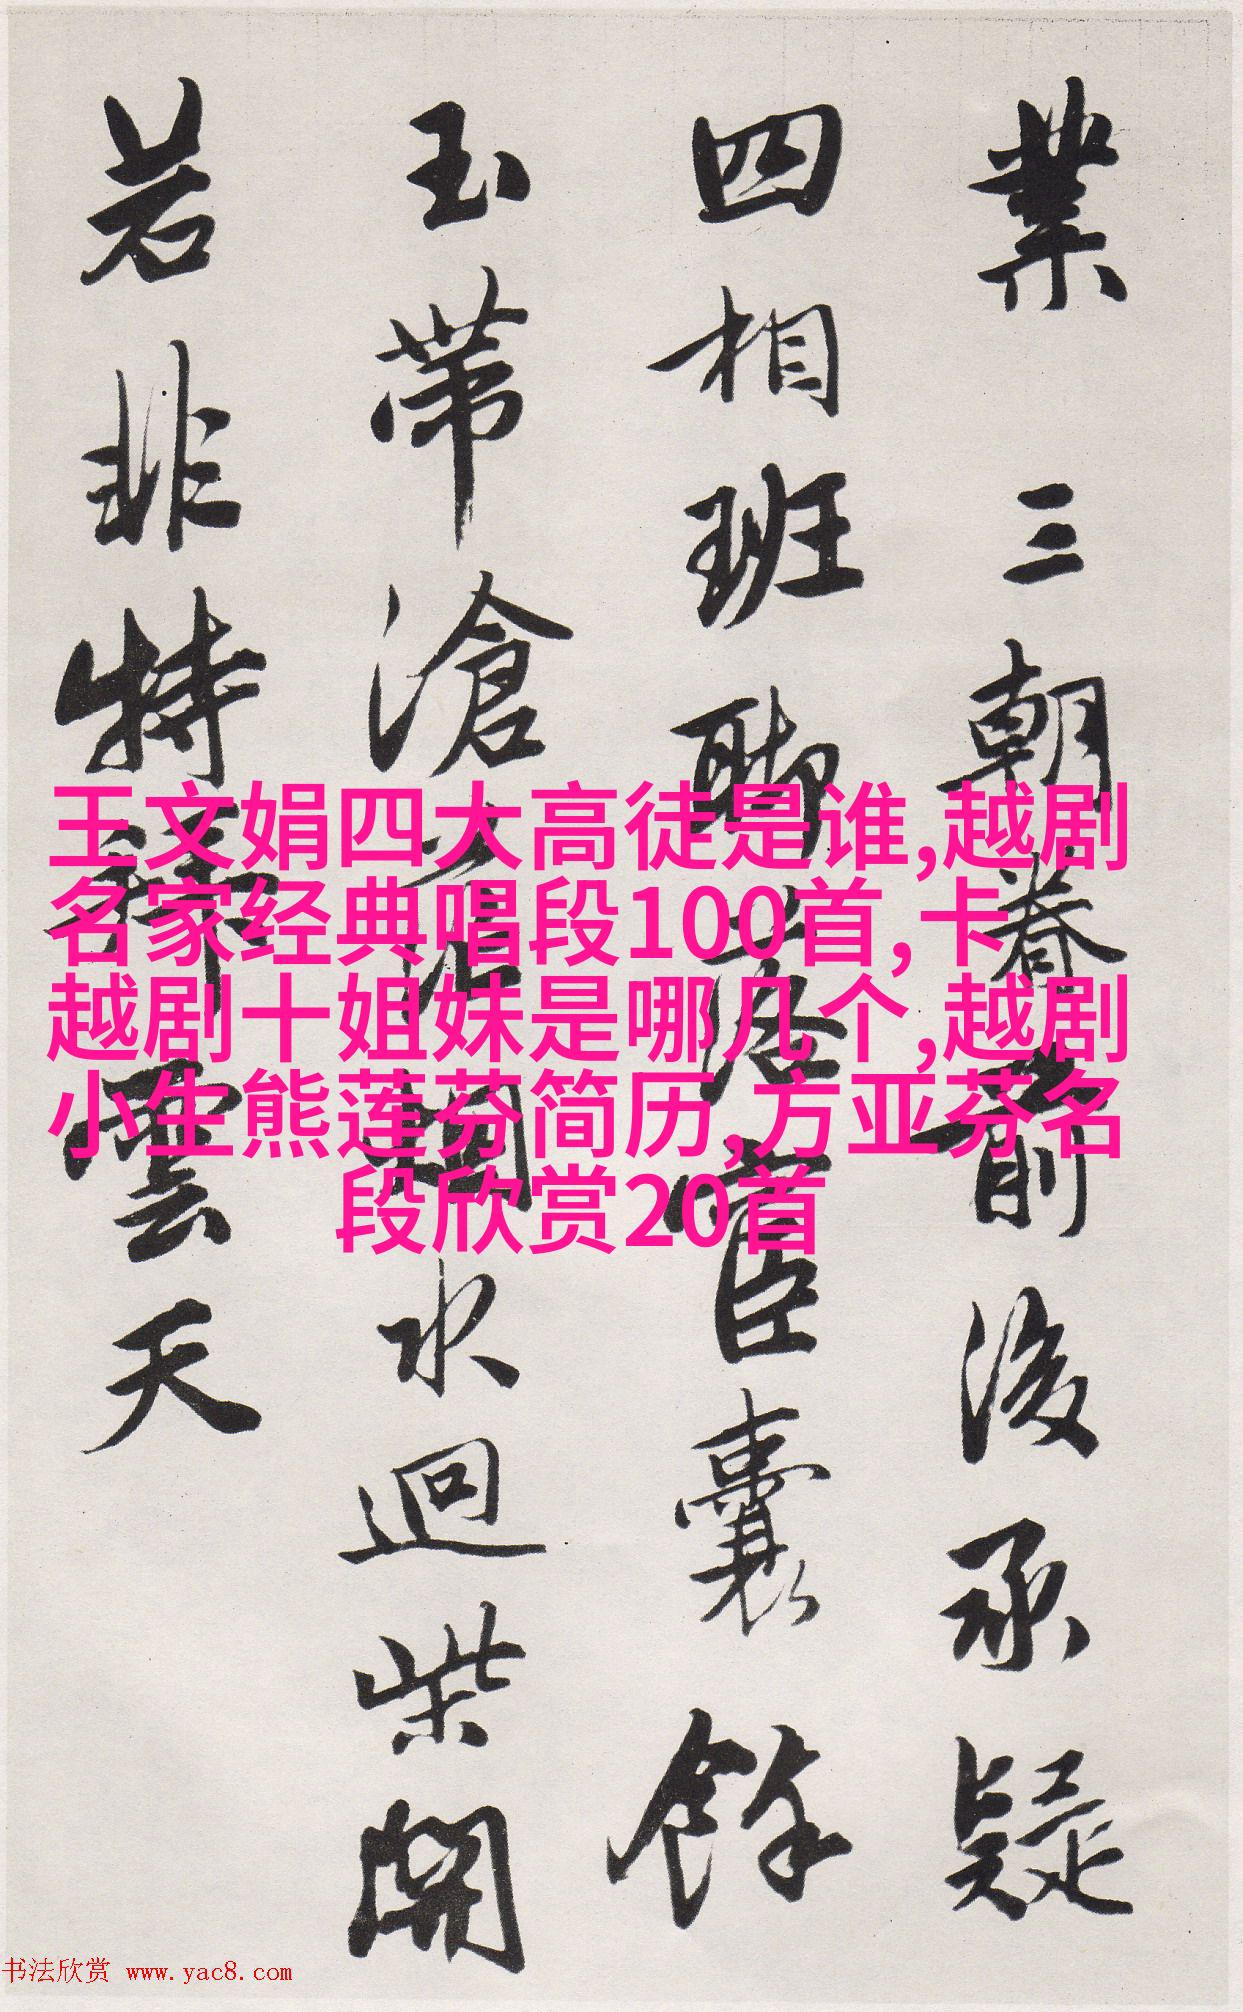 業 三朝眷前後承疑
四相班聯上洛臣囊餘
玉帶滄水迴柴開
若非特歸雲天
王文娟四大高徒是谁,越剧
名家经典唱段100首,卡
越剧十姐妹是哪几个,越剧
小生熊莲芬简历,方亚芬名
段欣赏20首
书法欣赏 www.yac8.com